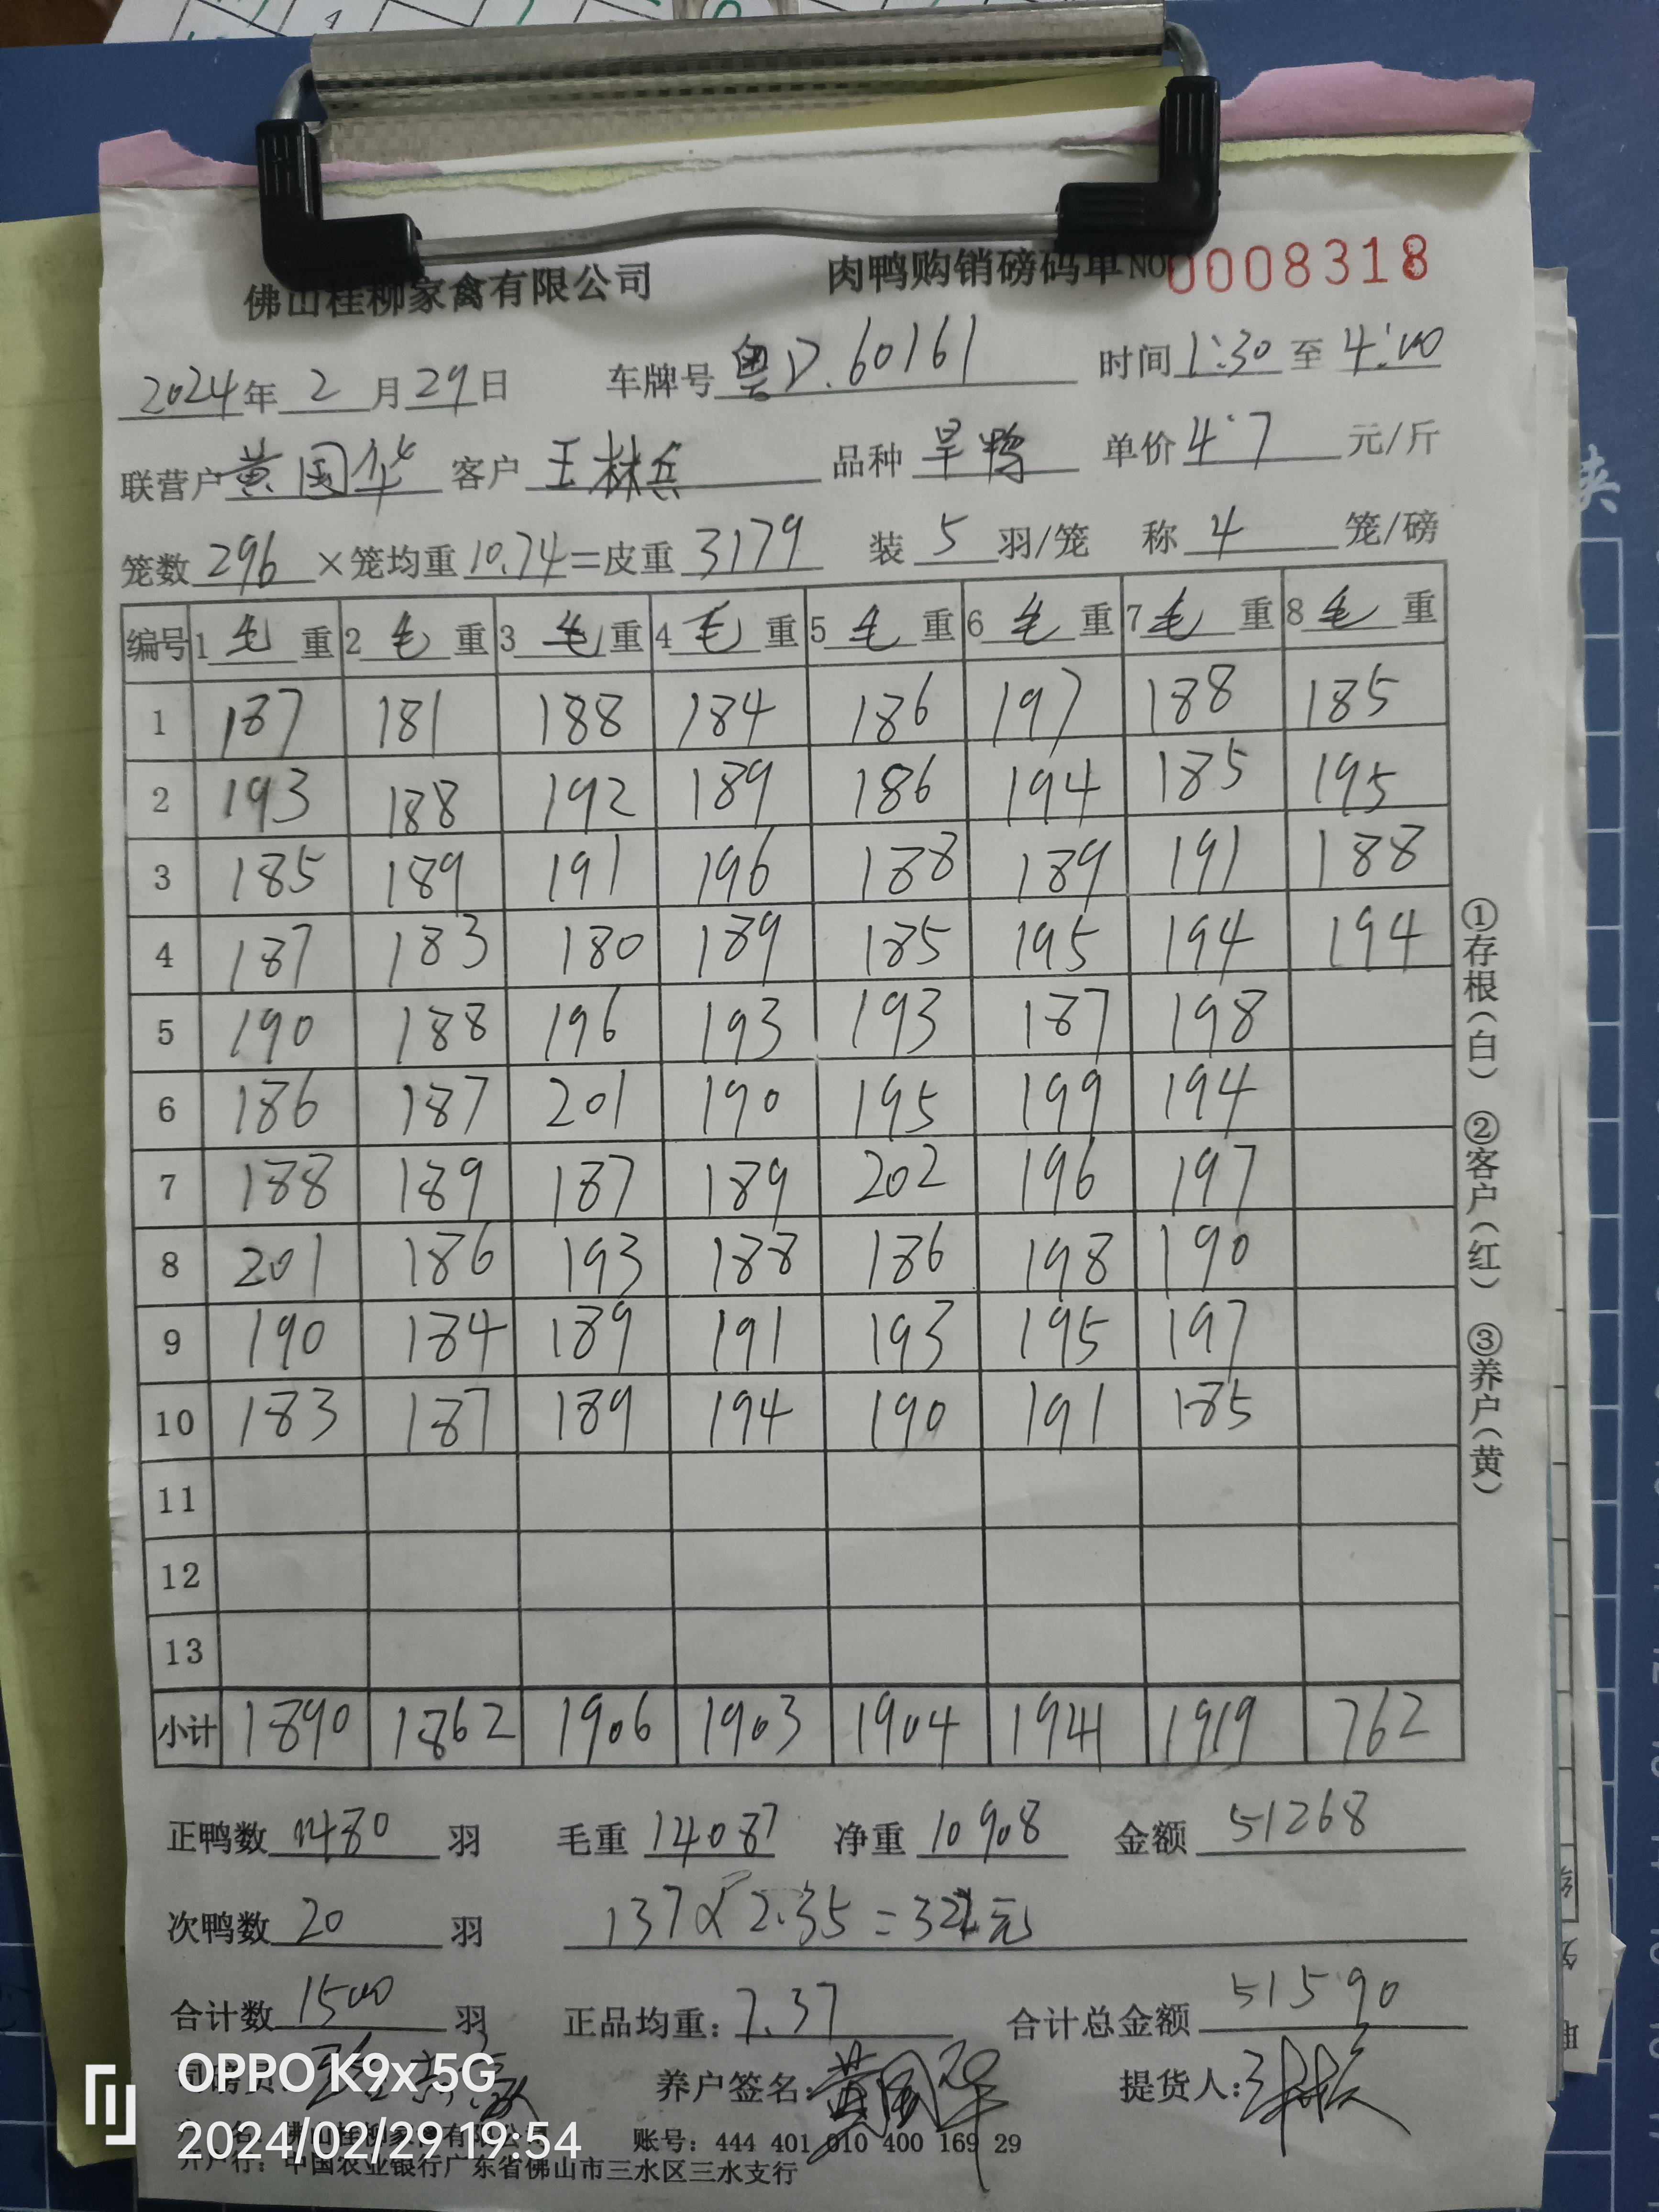 佛山桂柳家禽有限公司 肉鸭购销磅码单 NO 0008318
2024年 2 月 29 日 车牌号 粤D.60161 时间 1:30 至 4:00
联营户 黄国华 客户 王林兵 品种 旱鸭 单价 4.7 元/斤
笼数 296 ×笼均重 10.74 =皮重 3179 装 5 羽/笼 称 4 笼/磅
编号 1 毛 重 2 毛 重 3 毛 重 4 毛 重 5 毛 重 6 毛 重 7 毛 重 8 毛 重
1 187 181 188 184 186 197 188 185
2 193 188 192 189 186 194 185 195
3 185 189 191 196 188 189 191 188
4 187 183 180 189 185 195 194 194
5 190 188 196 193 193 187 198
6 186 187 201 190 195 199 194
7 188 189 187 189 202 196 197
8 201 186 193 188 186 198 190
9 190 184 189 191 193 195 197
10 183 187 189 194 190 191 185
11
12
13
小计 1890 1862 1906 1903 1904 1941 1919 762
①存根(白) ②客户(红) ③养户(黄)
正鸭数 1480 羽 毛重 14087 净重 10908 金额 51268
次鸭数 20 羽 137×2.35=322元
合计数 1500 羽 正品均重: 7.37 合计总金额 51590
养户签名: 黄国华 提货人:
佛山桂柳家禽有限公司 账号: 444 401 010 400 169 29
开户行: 中国农业银行广东省佛山市三水区三水支行
OPPO K9x 5G
2024/02/29 19:54